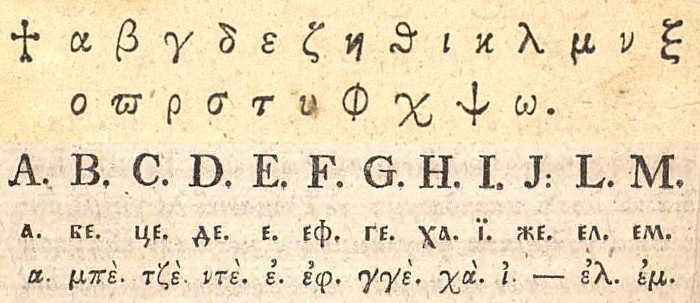 ☩ α β γ δ ε ζ η ϑ ι κ λ μ ν ξ
ο ϖ ρ σ τ υ φ χ ψ ω.
A. B. C. D. E. F. G. H. I. J. L. M.
а. бе. це. де. е. еф. ге. ха. ї. же. ел. ем.
α. μπὲ. τζὲ. ντὲ. ἐ. ἐφ. γγὲ. χὰ. ἰ. — ἐλ. ἐμ.